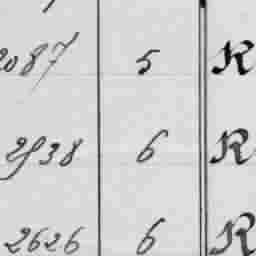 2087 5 R
2938 6 R
2626 6 R